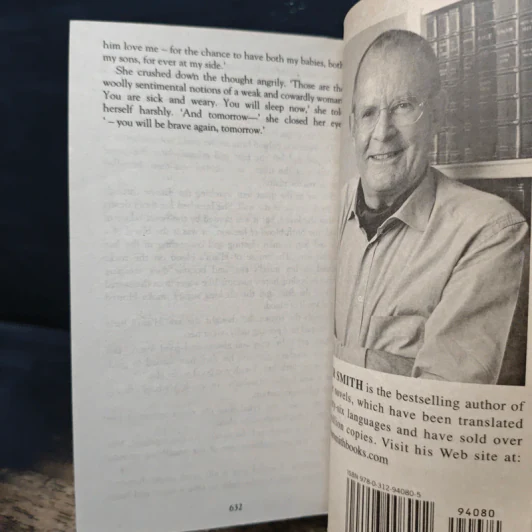 him love me – for the chance to have both my babies, both
my sons, for ever at my side.'
She crushed down the thought angrily. 'Those are the
woolly sentimental notions of a weak and cowardly woman.
You are sick and weary. You will sleep now,' she told
herself harshly. 'And tomorrow—' she closed her eyes
'– you will be brave again, tomorrow.'
631
SMITH is the bestselling author of
which have been translated
six languages and have sold over
copies. Visit his Web site at:
smithbooks.com
ISBN 978-0-312-94080-5
94080